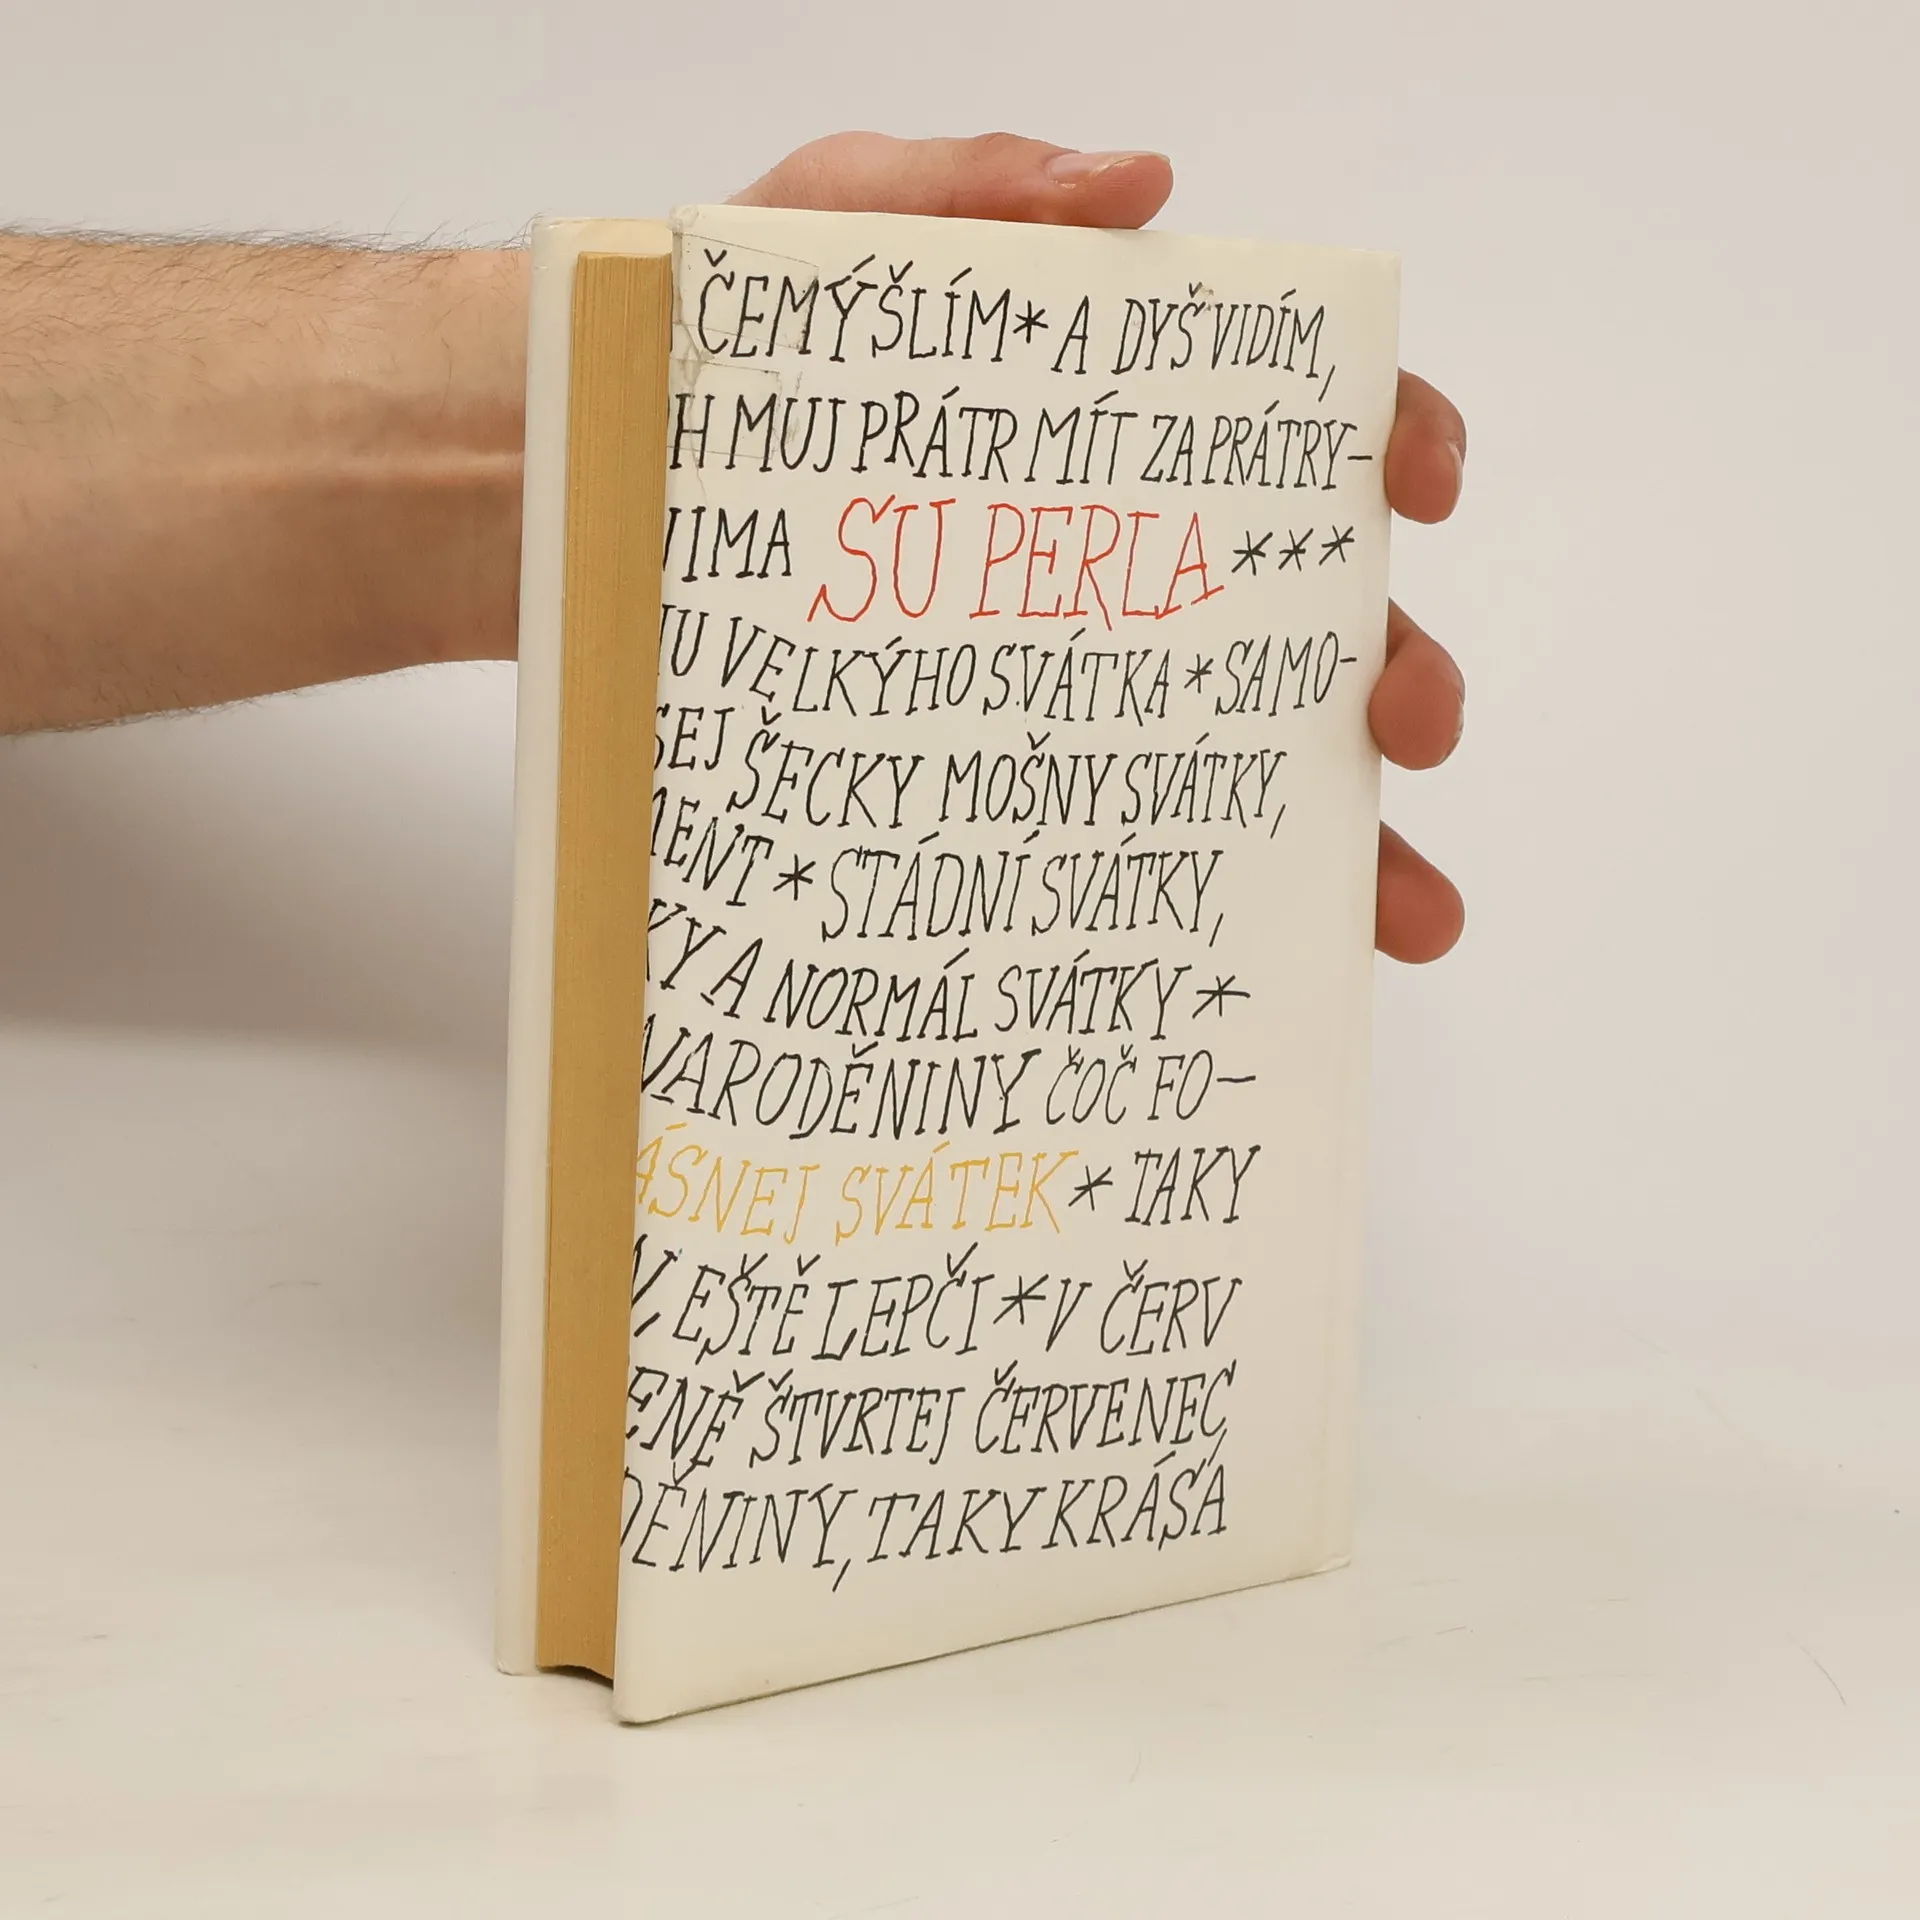 ČEMÝŠLÍM * A DYŠ VIDÍM,
MUJ PRÁTR MÍT ZA PRÁTRY-
IMA SU PERLA ***
U VELKÝHO SVÁTKA * SAMO-
SEJ ŠECKY MOŠNY SVÁTKY,
MENT * STÁDNÍ SVÁTKY,
KY A NORMÁL SVÁTKY *
NARODĚNINY ČOČ FO-
ÁSNEJ SVÁTEK * TAKY
EŠTĚ LEPČI * V ČERV
ENĚ ŠTVRTEJ ČERVENEC,
DĚNINY, TAKY KRÁSA